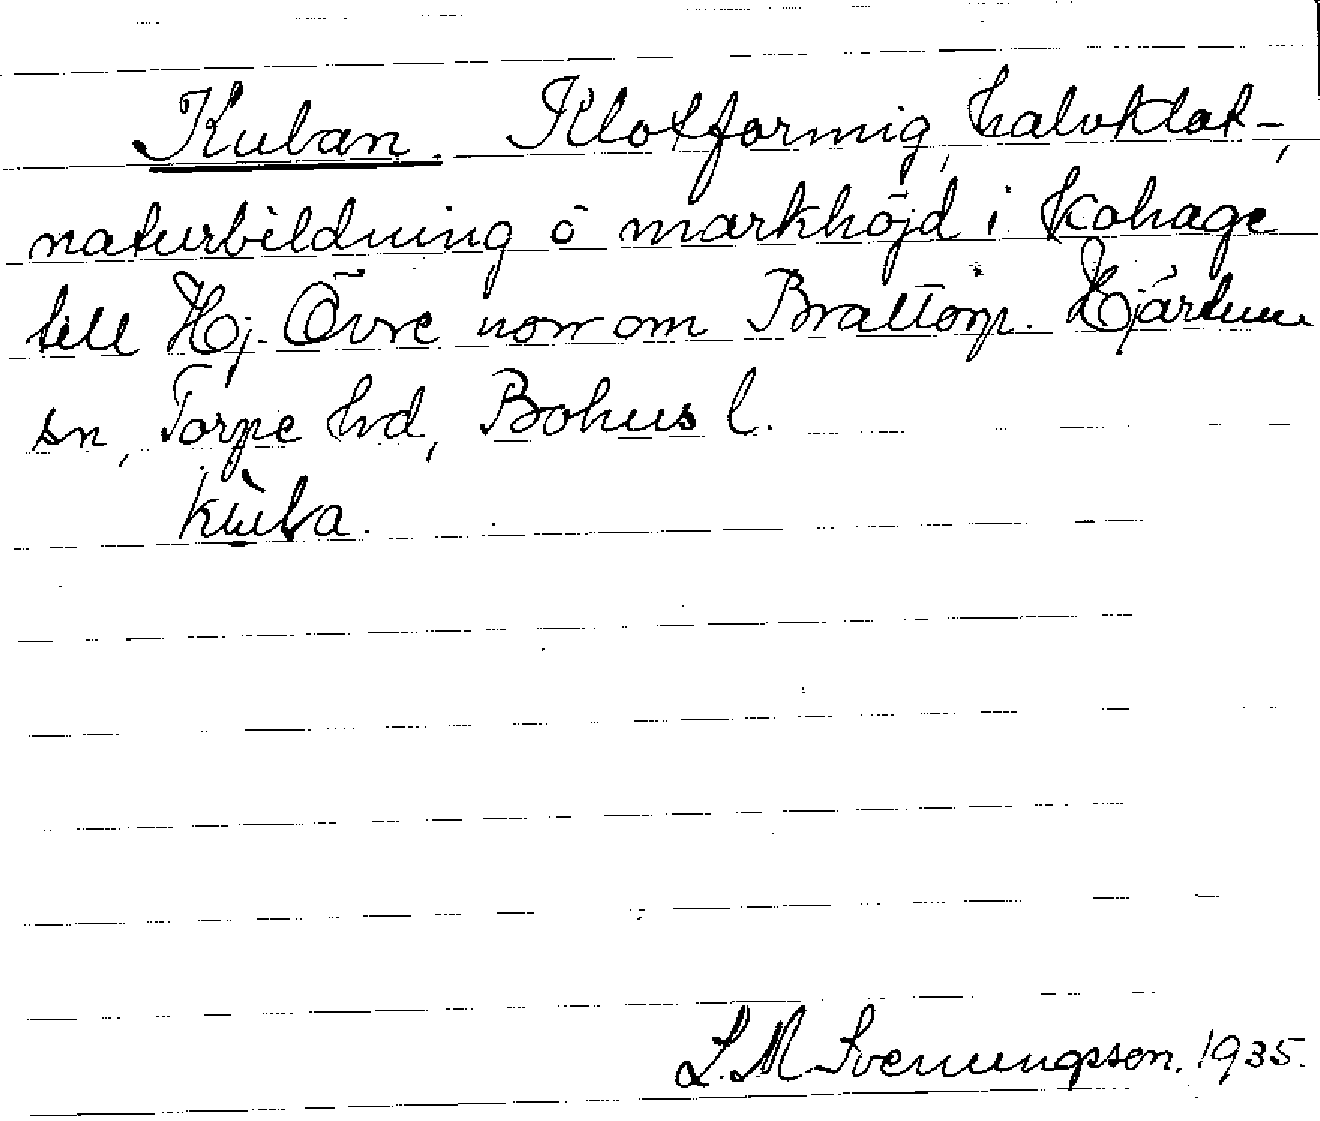 Kuban. Klotformig, halvklot-,
naturbildning ö markhöjd i kohage
till Hj. Övre norr om Brattorp. Hjärtum
sn, Torpe hd, Bohus l.
kùba.
L. M. Svenungsson. 1935.